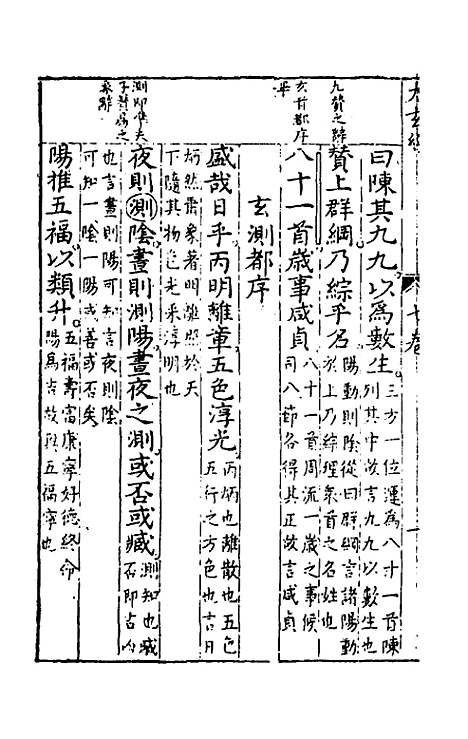 太玄經
一卷
曰陳其九九以爲數生三方一位運爲八十一首陳列其中故言九九以數生也
贊上群綱乃綜乎名陽動則陰從曰群綱言諸陽動於上乃綜理衆首之名姓也
八十一首歲事咸貞八十一首周流一歲之事候司八節各得其正故言咸貞
玄測都序
盛哉日乎丙明離章五色淳光丙炳也離散也五色五行之方色也言日
炳然著象著明離照於天下隨其物色光采淳明也
夜則測陰晝則測陽晝夜之測或否或臧測知也臧否即吉凶
也言晝則陽可知言夜則陰可知一陰一陽或善或否矣
陽推五福以類升五福壽富康寧好德終命陽爲吉故與五福寧也
九贊之辭
玄首都序
測即